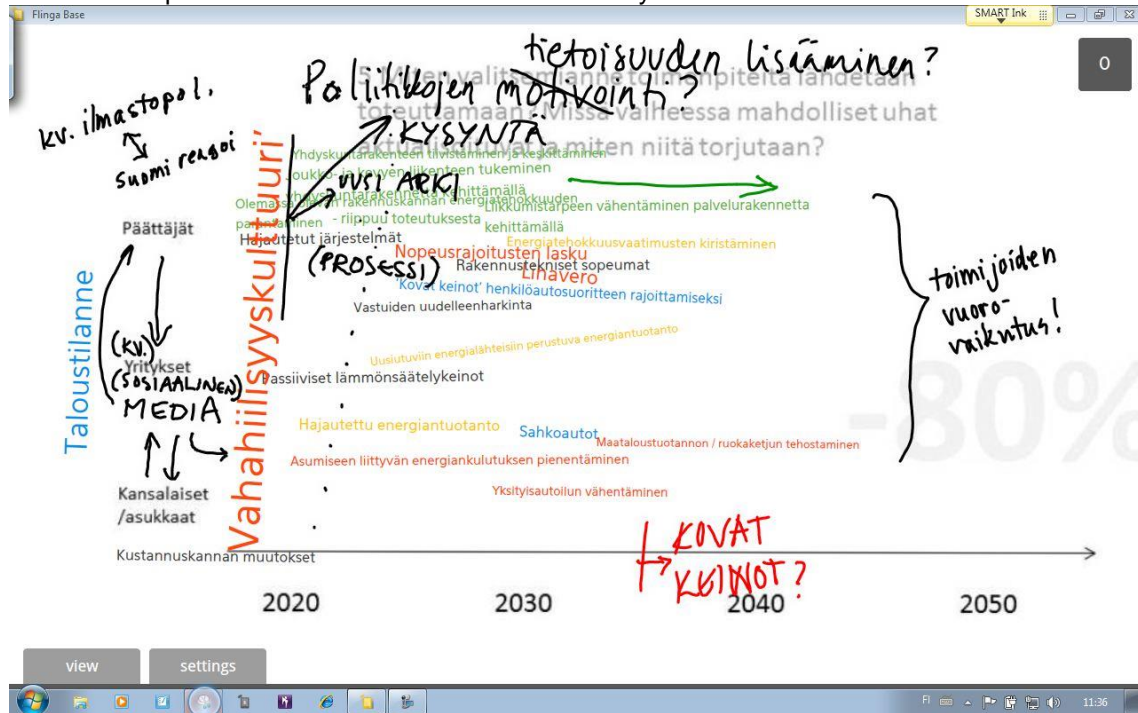 Flinga Base
SMART Ink
0
tietoisuuden lisääminen?
Politikkojen motivointi?
valitsemianne toimenpiteitä lähdetään
toteuttamaan? Missä vaiheessa mahdolliset uhat
aktualisoituvat ja miten niitä torjutaan?
kv. ilmastopol.
Suomi reagoi
KYSYNTÄ
Yhdyskuntarakenteen tiivistäminen ja keskittäminen
Joukko- ja kevyen liikenteen tukeminen
UUSI ARKI
yhdyskuntarakennetta kehittämällä
Olemassa olevan rakennuskannan energiatehokkuuden
parantaminen
- riippuu toteutuksesta
Liikkumistarpeen vähentäminen palvelurakennetta
kehittämällä
Päättäjät
Hajautetut järjestelmät
Energiatehokkuusvaatimusten kiristäminen
Nopeusrajoitusten lasku
(PROSESSI)
Rakennustekniset sopeumat
Lihavero
'Kovat keinot' henkilöautosuoritteen rajoittamiseksi
Vastuiden uudelleenharkinta
toimijoiden
vuoro-
vaikutus!
Taloustilanne
Vähähiilisyyskulttuuri'
Uusiutuviin energialähteisiin perustuva energiantuotanto
(KV.)
Yritykset
(SOSIAALINEN)
MEDIA
Passiiviset lämmönsäätelykeinot
-80%
Hajautettu energiantuotanto
Sahkoautot
Maataloustuotannon / ruokaketjun tehostaminen
Asumiseen liittyvän energiankulutuksen pienentäminen
Kansalaiset
/asukkaat
Yksityisautoilun vähentäminen
Kustannuskannan muutokset
KOVAT
KEINOT?
2020 2030 2040 2050
view settings
FI 11:36